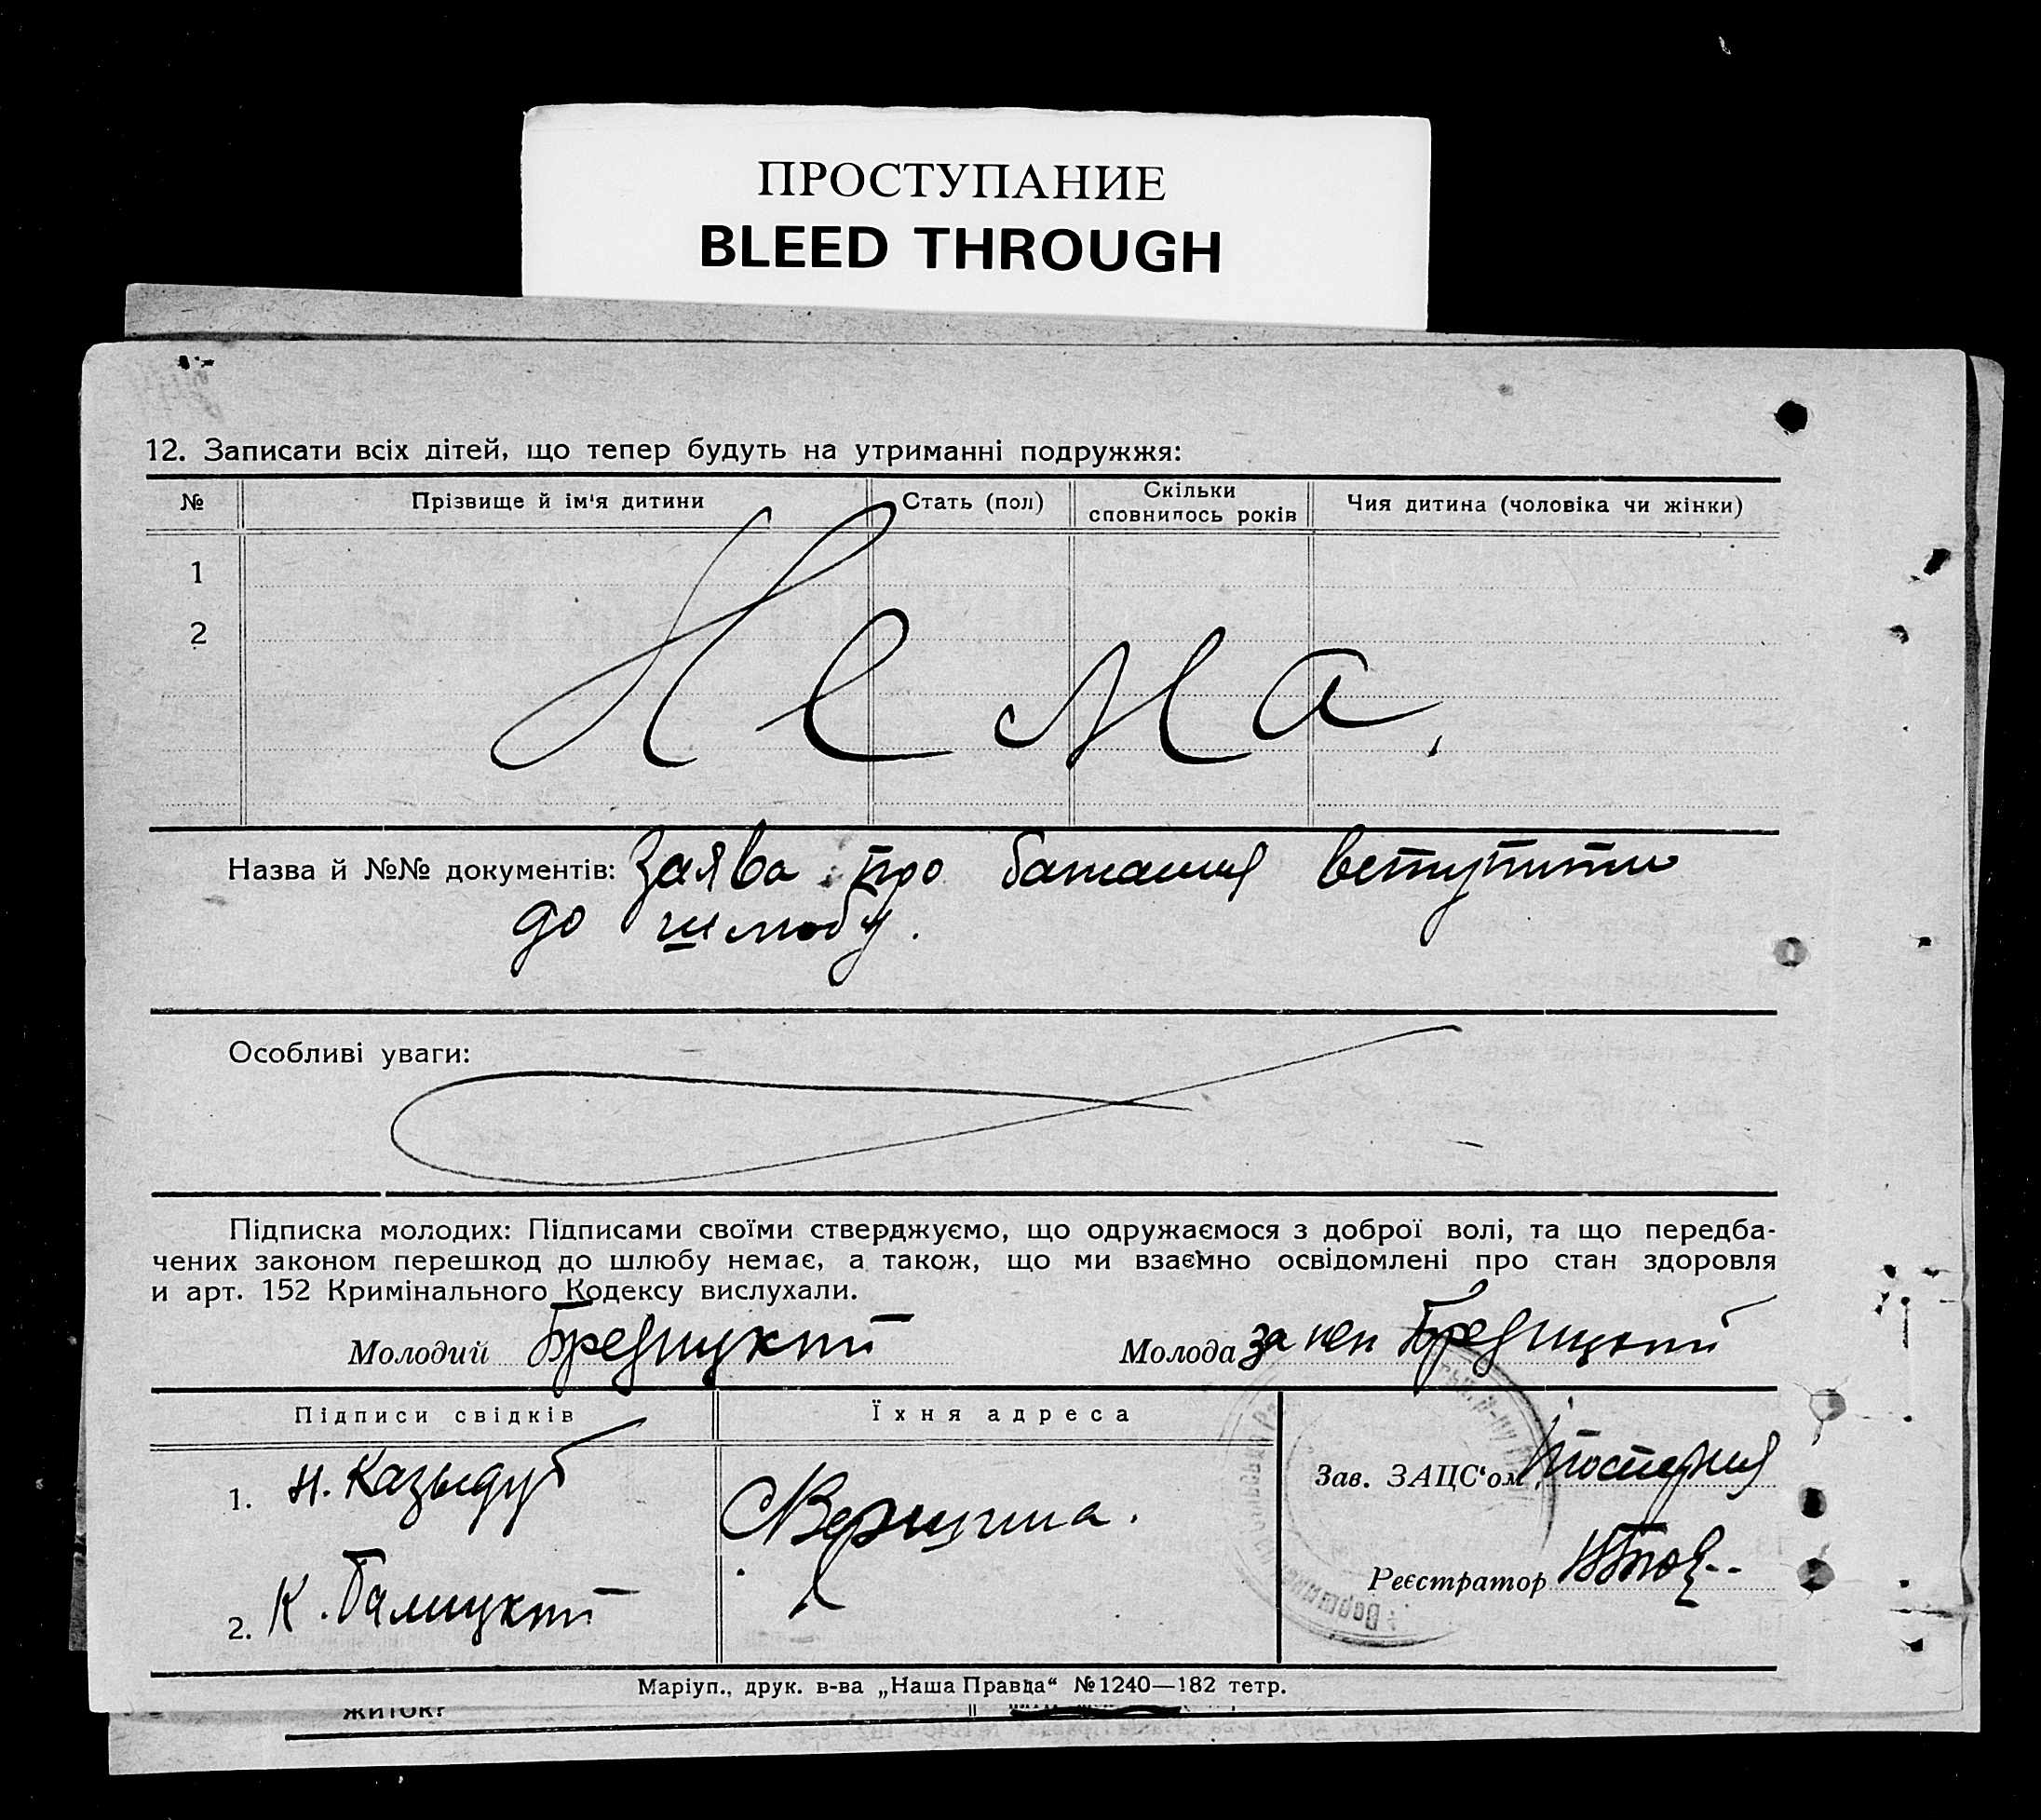 ПРОСТУПАНИЕ
BLEED THROUGH
12. Записати всіх дітей, що тепер будуть на утриманні подружжя:
№ Прізвище й ім'я дитини Стать (пол) Скільки сповнилось років Чия дитина (чоловіка чи жінки)
1
2
Нема.
Назва й №№ документів: Заява про бажання вступити
до шлюбу.
Особливі уваги:
Підписка молодих: Підписами своїми стверджуємо, що одружаємося з доброї волі, та що передба-
чених законом перешкод до шлюбу немає, а також, що ми взаємно освідомлені про стан здоровля
и арт. 152 Кримінального Кодексу вислухали.
Молодий Бредицкий Молода за неи Бредицкий
Підписи свідків Їхня адреса
1. Н. Казыдуб
С Вершина.
Зав. ЗАЦС'ом
Реєстратор
2. К. Балицкий
Маріуп., друк. в-ва „Наша Правда“ №1240—182 тетр.
житок?